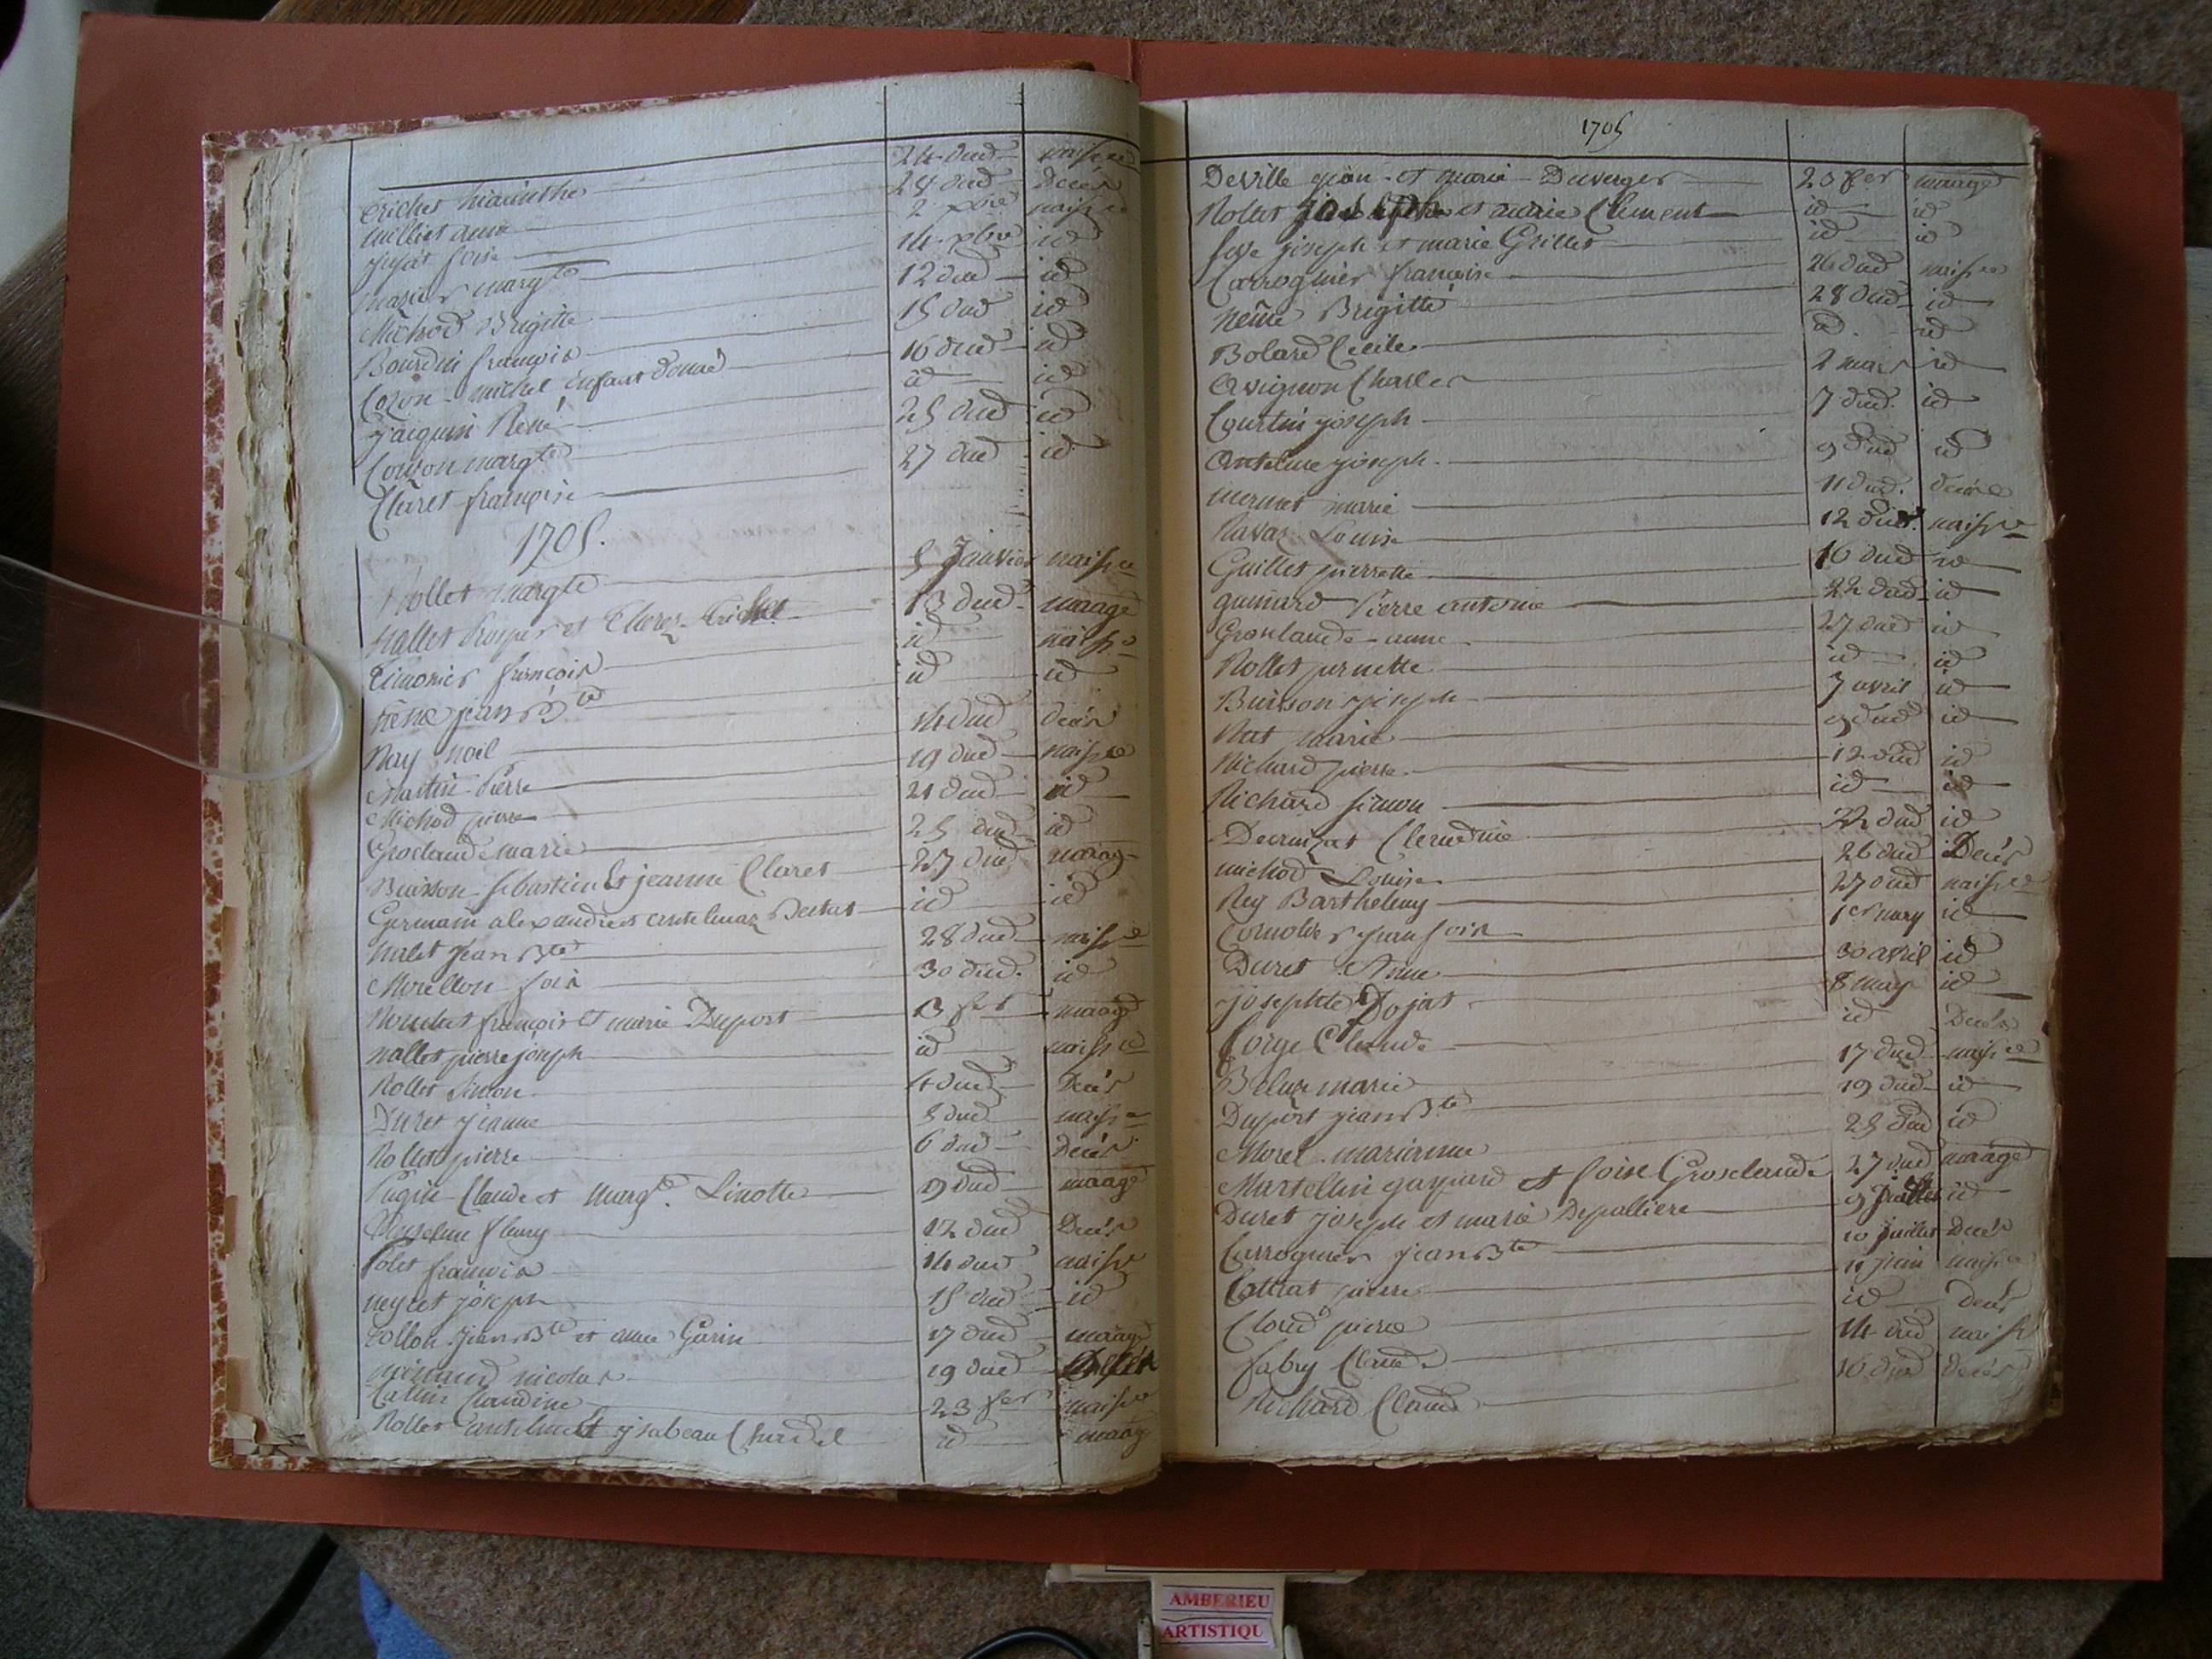 24 dud naisce
Trichet hiacinthe 28 dud Decés
Milliet anne 2 xbre naisce
Jujat foise 14 xbre id
margte 12 dud id
Michod Brigitte 15 dud id
Bourdin françois 16 dud id
Cozon michel Enfant donné id id
Jacquin René 25 dud id
Couzon margte 27 dud id
Claret françoise
1705.
Rollet margte 5 Janvier naisce
Nallet et 13 dud maage
Timonier françois id naisce
jean Bte id id
Ray Noel 14 dud decés
Martin Pierre 19 dud naisce
Michod pierre 21 dud id
Groclaude marie 25 dud id
Buisson Sebastien Et jeanne Claret 27 dud maag
Germain alexandre et id id
Jean Bte 28 dud naisce
Morellon fois 30 dud. id
françois Et marie Duport 3 fer maage
Nallet pierre joseph id naisce
Rollet Simon 4 dud Decés
Duret jeanne 5 dud naisce
Rollet pierre 6 dud Decés
Pugin Claude et Margte. Linotte 9 dud maage
Anselme fleury 12 dud Decés
Polet françois 14 dud naisce
neyret joseph 15 dud id
Tollon jean Bte et anne Garin 17 dud maage
nicolas 19 dud Decés
Catlin Claudine 23 fer naisce
Rollet antelme Et ysabeau Chardel id maag
1705
Deville jean et marie Duverger 23 fer maage
Rolet Joseph et marie Clement id id
joseph et marie Grillet id id
Carrognier françoise 26 dud naisce
Brigitte 28 dud id
Bolard Cecile id id
Avignon Charles 2 mars id
Courtin joseph 7 dud. id
Antelme joseph. 9 dud id
mermet marie 11 dud. decés
Ravaz Louise 12 dud. naisce
Guillet pierrette 16 dud id
guinard Pierre antoine 22 dud id
Groslaude anne 27 dud id
Rollet pernette id id
Buisson joseph 7 avril id
marie 9 dud id
Richard pierre 12 dud id
Richard simon id id
22 dud id
michod Louise 26 dud Decés
Rey Barthelemy 27 dud naisce
1er may id
Duret Anne 30 avril id
josephte Dojat 8 may id
forge Claude id Decés
Beluz marie 17 dud naisce
Duport jean Bte 19 dud id
Morel marianne 25 dud id
Martellin gaspard et foise Grosclaude 27 dud maage
Duret joseph et marie Depalliere 9 Juillet id
Carrognier jean Bte 10 juillet Decés
Cottrat pierre 11 juin naisce
pierre id decés
fabry Claude 14 dud naisce
Richard Claud 16 dud decés
AMBERIEU
ARTISTIQU